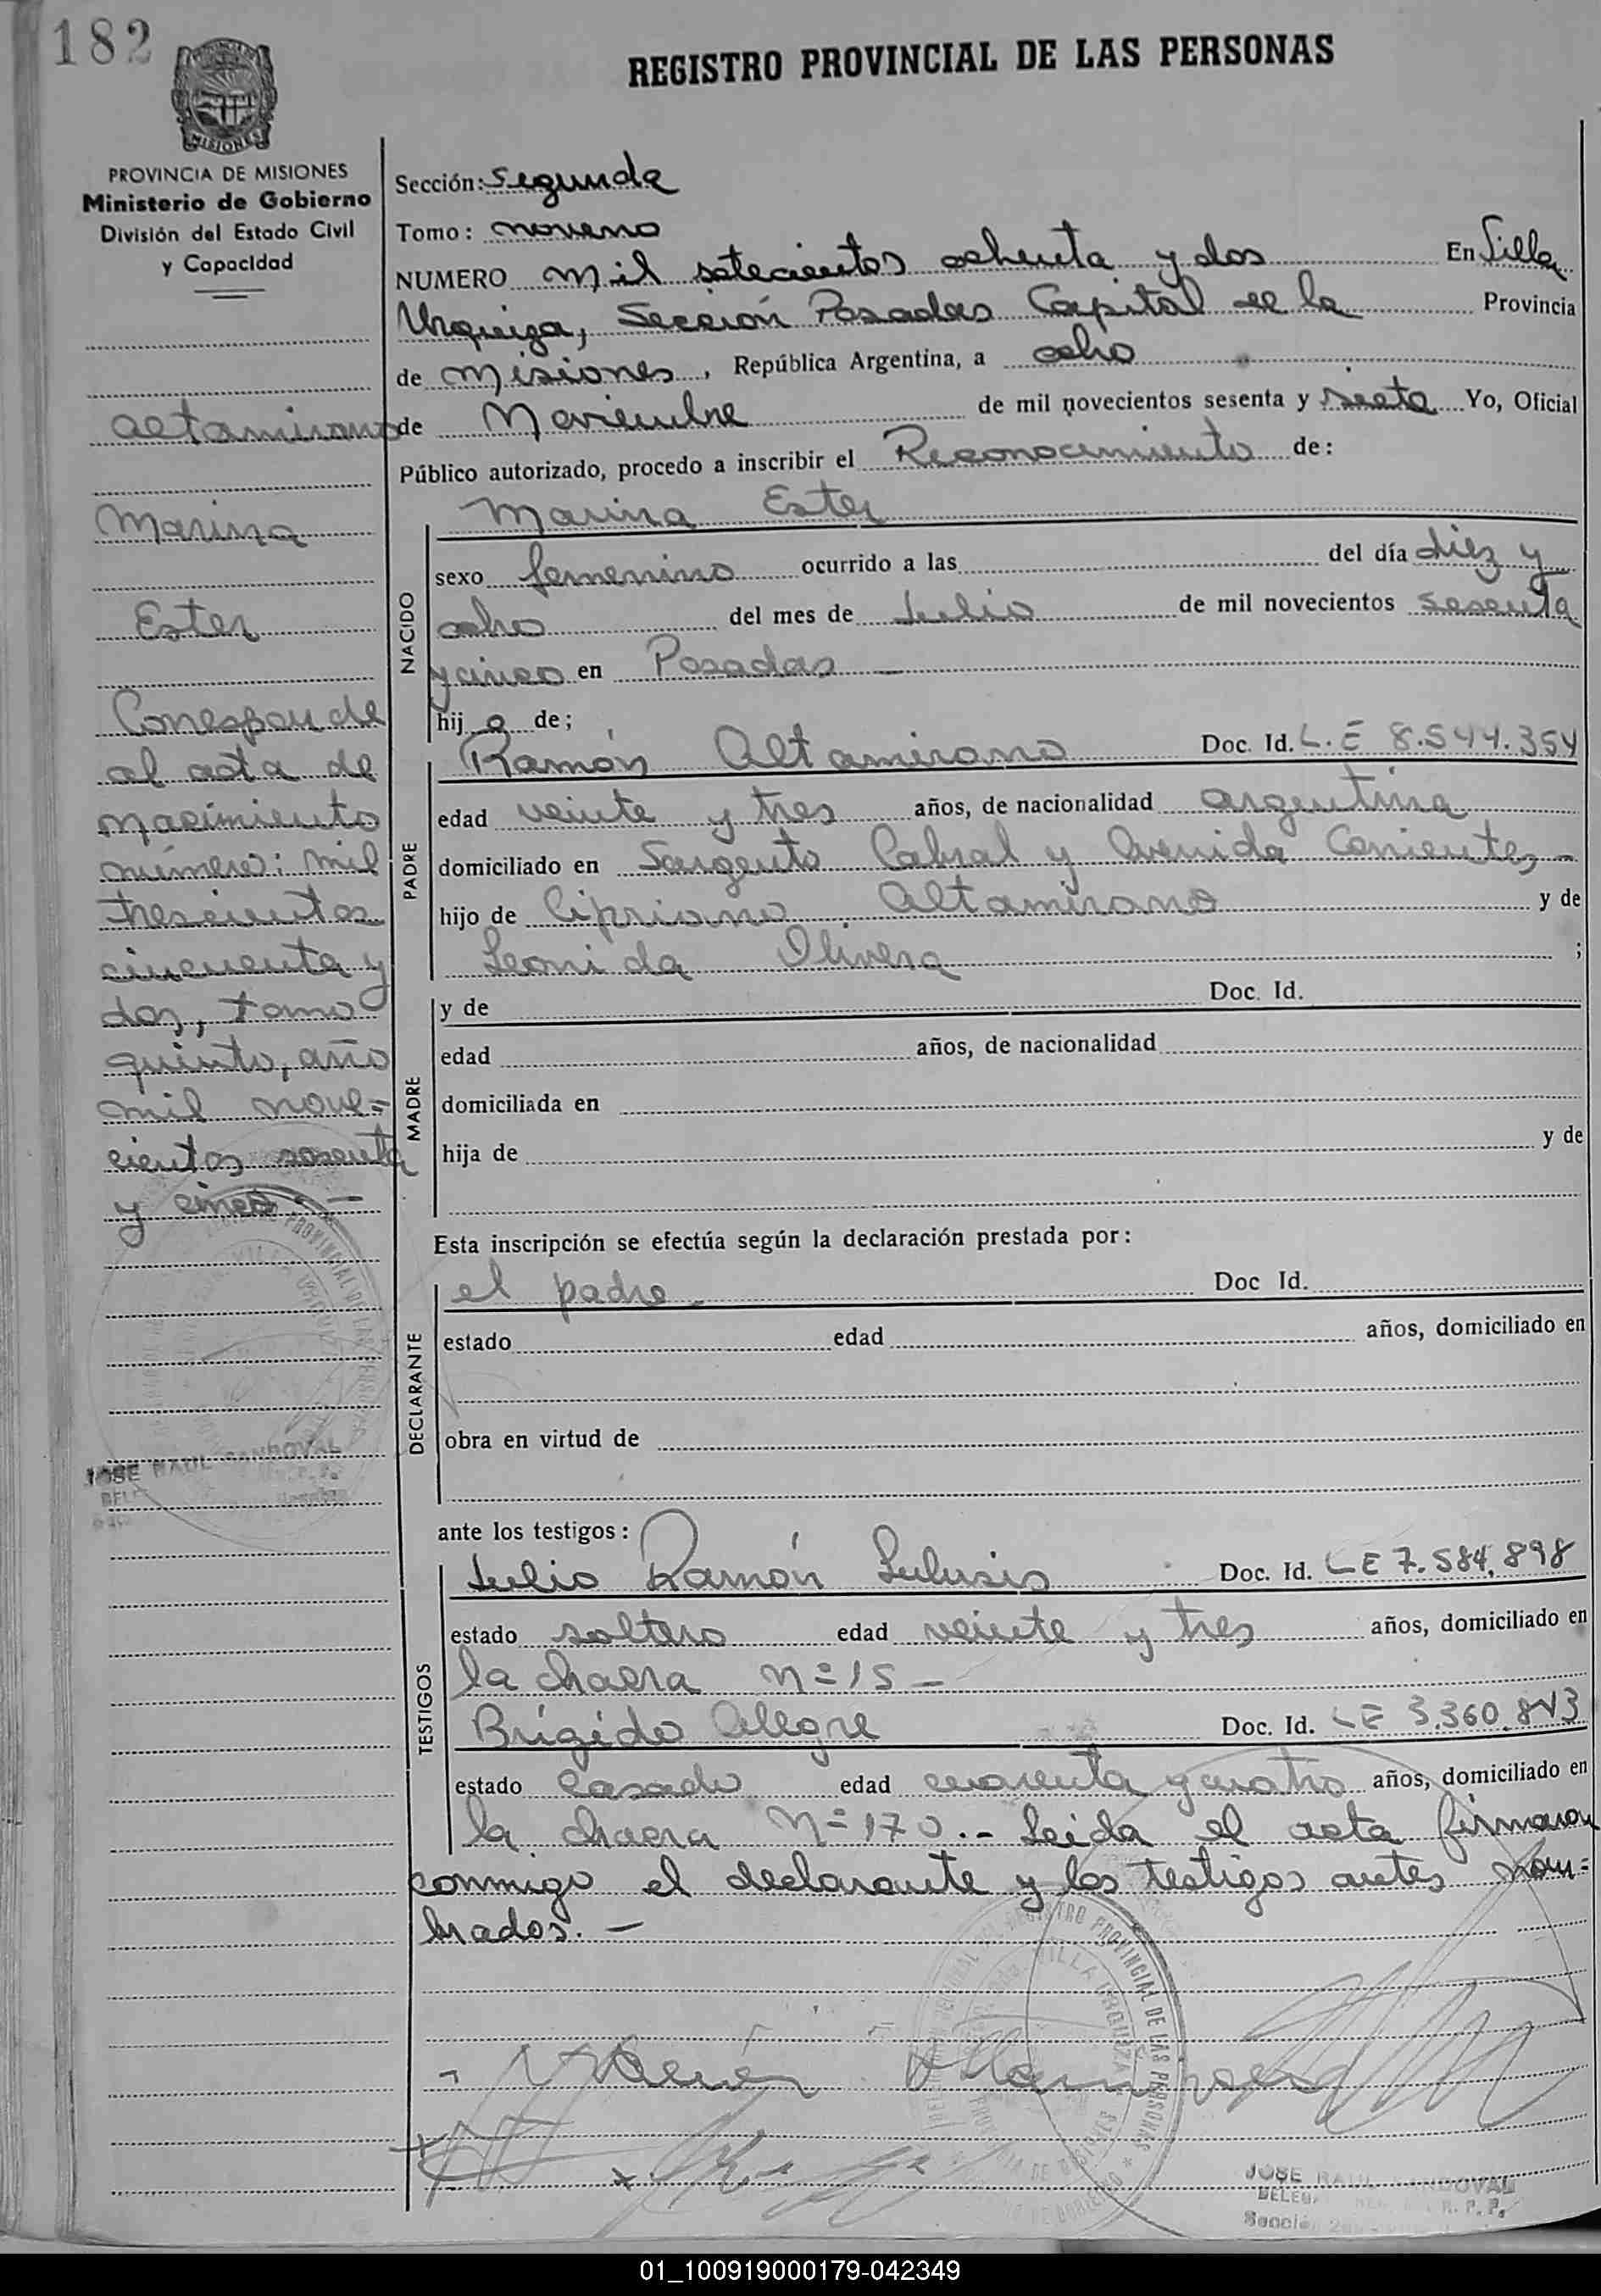 182
REGISTRO PROVINCIAL DE LAS PERSONAS
MISIONES
PROVINCIA DE MISIONES
Ministerio de Gobierno
División del Estado Civil
y Capacidad
Altamirano
Marina
Ester
Corresponde
al acta de
nacimiento
número: mil
trescientos
cincuenta y
dos, tomo
quinto, año
mil nove=
cientos sesenta
y cinco. -
JOSE RAUL SANDOVAL
Sección: Segunda
Tomo: noveno
NUMERO mil setecientos ochenta y dos En Villa
Urquiza, Sección Posadas Capital de la Provincia
de Misiones, República Argentina, a ocho
de Noviembre de mil novecientos sesenta y siete Yo, Oficial
Público autorizado, procedo a inscribir el Reconocimiento de:
NACIDO
Marina Ester
sexo femenino ocurrido a las del día diez y
ocho del mes de Julio de mil novecientos sesenta
y cinco en Posadas —
hija de;
PADRE
Ramón Altamirano Doc. Id. L.E 8.544.354
edad veinte y tres años, de nacionalidad argentina
domiciliado en Sargento Cabral y Avenida Corrientes -
hijo de Cipriano Altamirano y de
Leonida Olivera ;
MADRE
y de Doc. Id.
edad años, de nacionalidad
domiciliada en
hija de y de
Esta inscripción se efectúa según la declaración prestada por:
DECLARANTE
el padre - Doc Id.
estado edad años, domiciliado en
obra en virtud de
ante los testigos:
TESTIGOS
Julio Ramón Doc. Id. LE 7.584.898
estado soltero edad veinte y tres años, domiciliado en
la chacra Nº 15 -
Brígido Alegre Doc. Id. LE 3.360.843
estado casado edad cuarenta y cuatro años, domiciliado en
la chacra Nº 170.- Leida el acta firmaron
conmigo el declarante y los testigos antes nom=
brados. —
REGISTRO PROVINCIAL DE LAS PERSONAS
VILLA URQUIZA
JOSE RAUL SANDOVAL
01_100919000179-042349